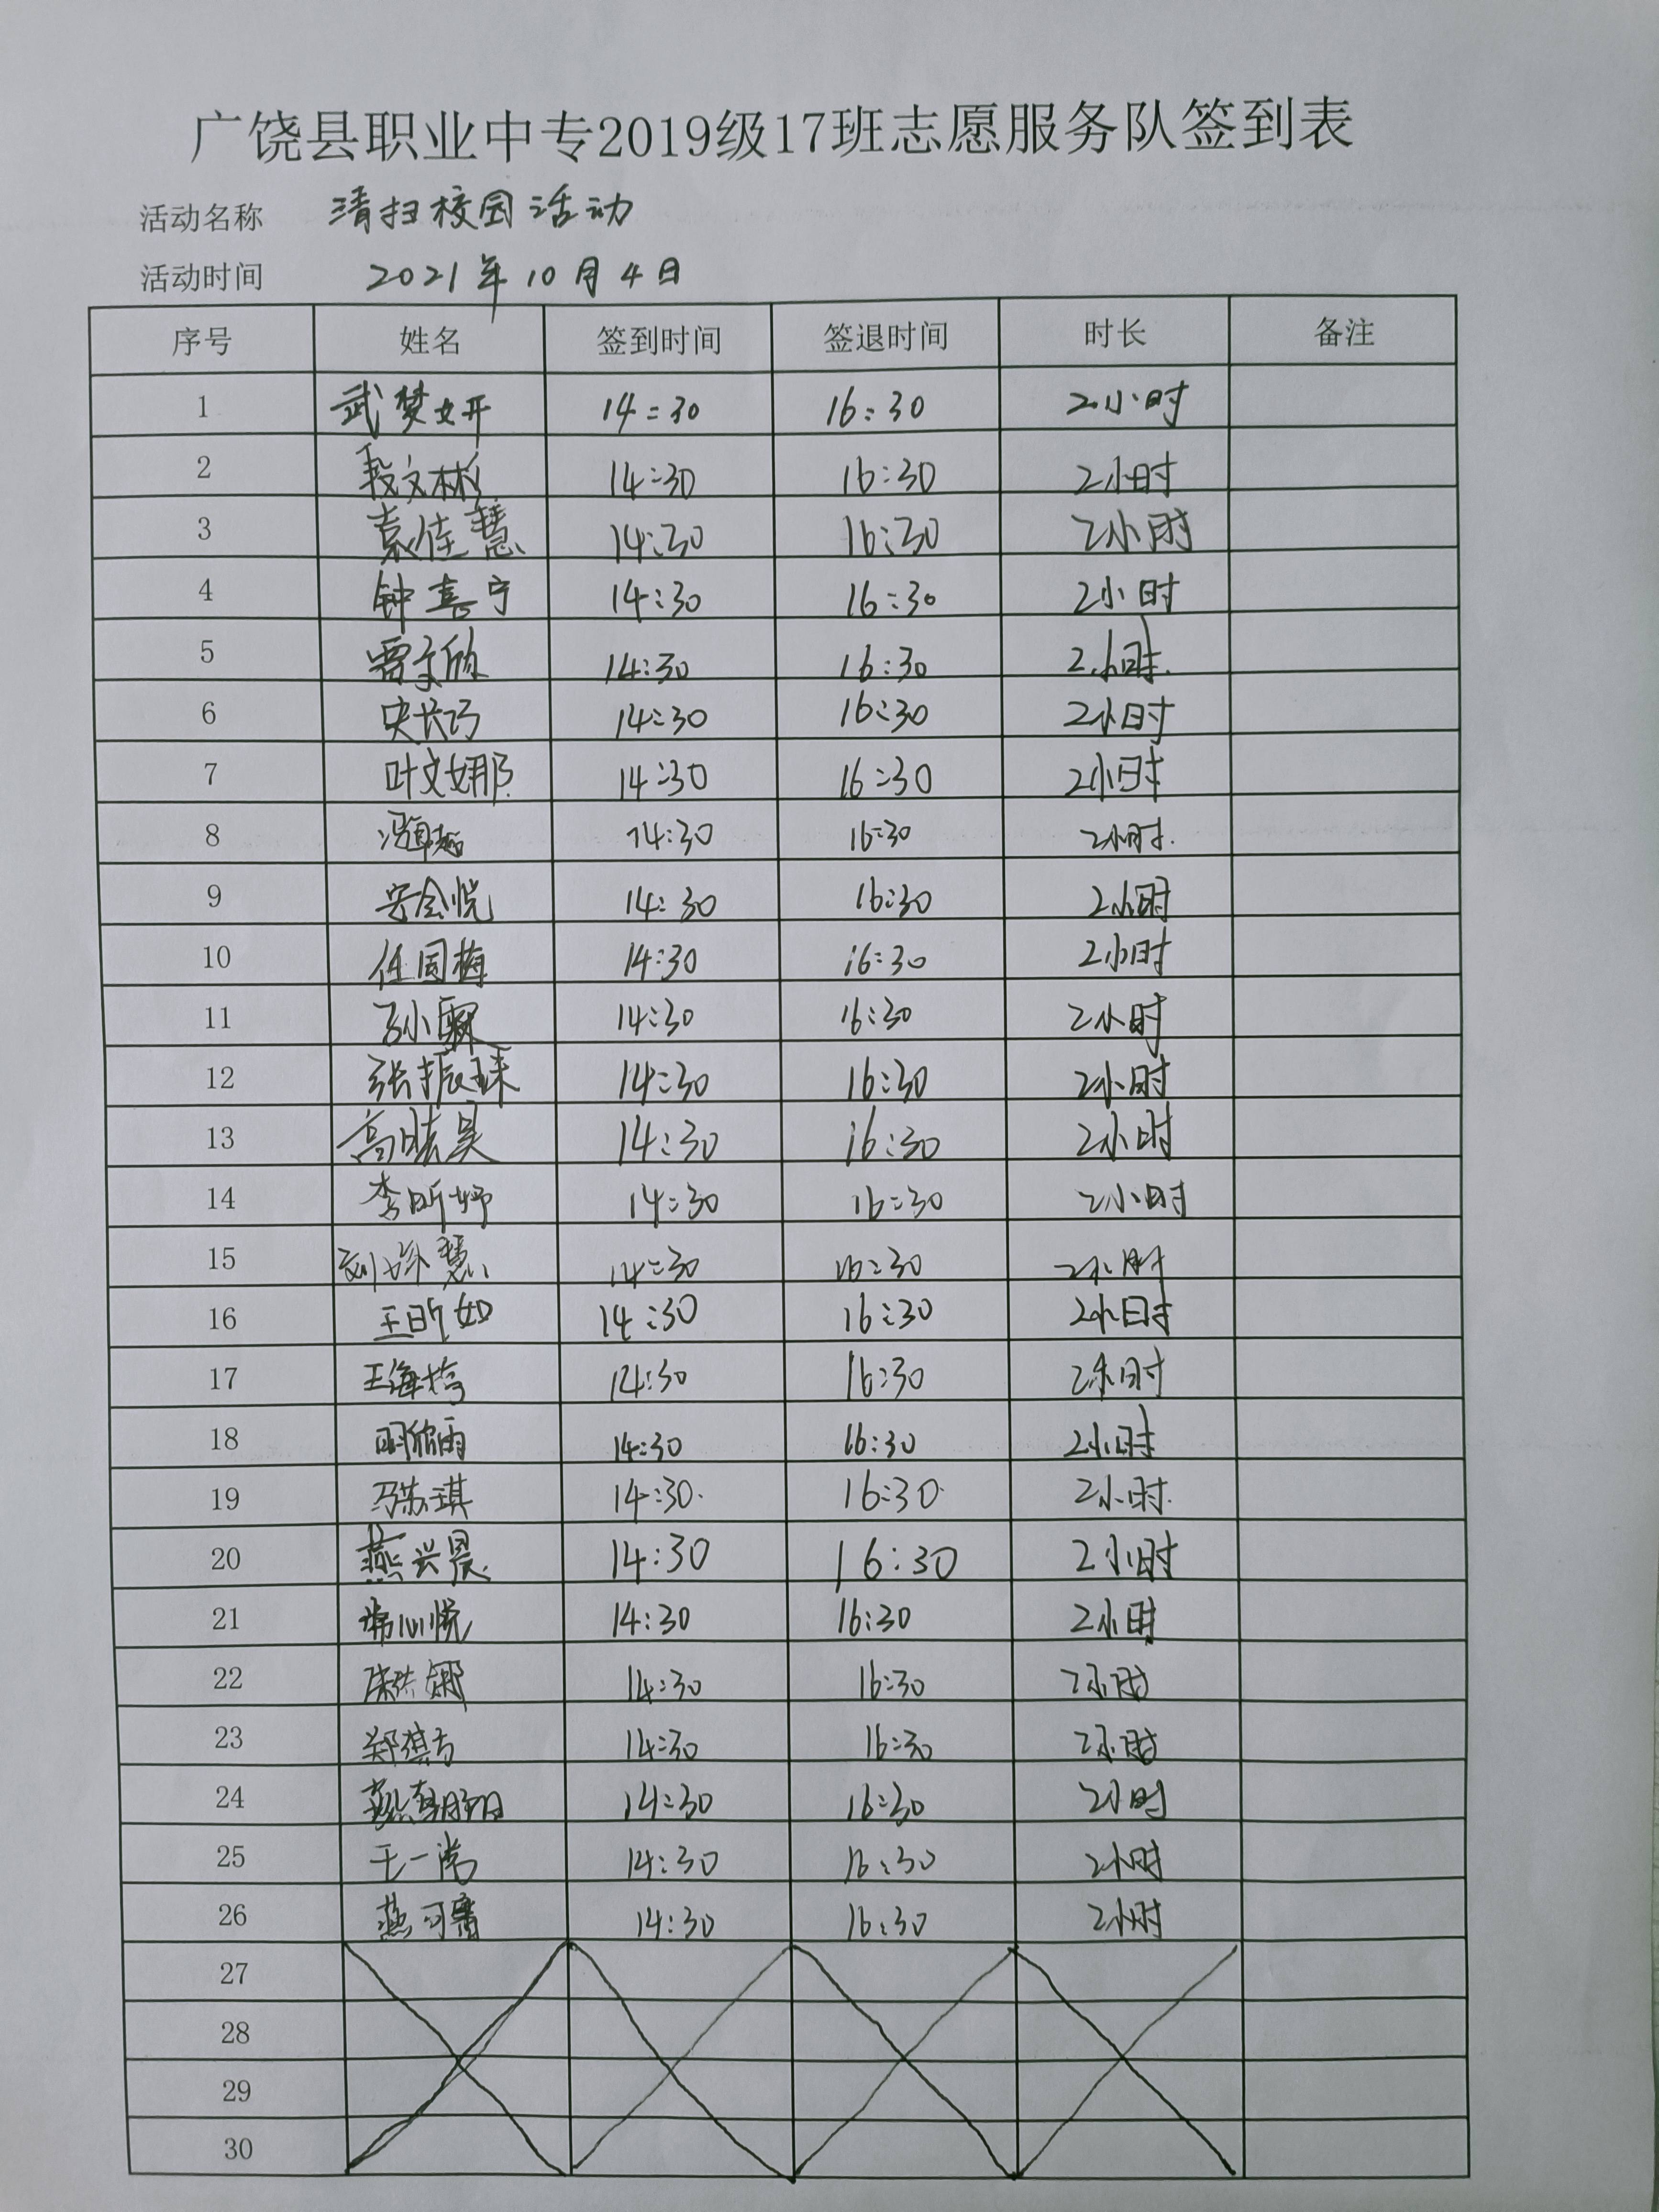 广饶县职业中专2019级17班志愿服务队签到表
活动名称 清扫校园活动
活动时间 2021年10月4日
序号 姓名 签到时间 签退时间 时长 备注
1 武梦妍 14:30 16:30 2小时
2 段文彬 14:30 16:30 2小时
3 袁佳慧 14:30 16:30 2小时
4 钟喜宁 14:30 16:30 2小时
5 14:30 16:30 2小时
6 史长巧 14:30 16:30 2小时
7 叶文娜 14:30 16:30 2小时
8 14:30 16:30 2小时
9 安会悦 14:30 16:30 2小时
10 任同梅 14:30 16:30 2小时
11 14:30 16:30 2小时
12 张振琭 14:30 16:30 2小时
13 高昡昊 14:30 16:30 2小时
14 李昕妤 14:30 16:30 2小时
15 14:30 16:30 2小时
16 王昕如 14:30 16:30 2小时
17 14:30 16:30 2小时
18 明欣雨 14:30 16:30 2小时
19 马苏琪 14:30 16:30 2小时
20 燕兴晨 14:30 16:30 2小时
21 14:30 16:30 2小时
22 14:30 16:30 2小时
23 14:30 16:30 2小时
24 燕朝阳 14:30 16:30 2小时
25 14:30 16:30 2小时
26 14:30 16:30 2小时
27
28
29
30